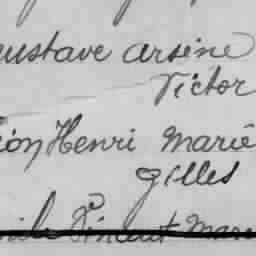 ustave Arsène
Victor
ion Henri Marie
Gilles
ile Vincent Mar